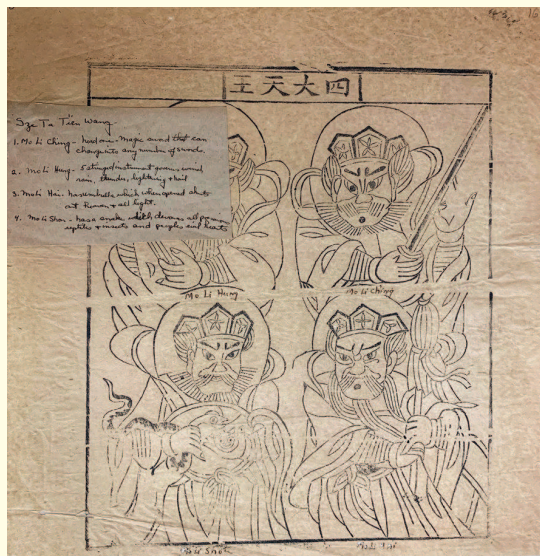 四大天王
Sze Ta Tien Wang
1. Mo Li Ching - has a magic sword that can
change into any number of swords.
2. Mo Li Hung - 5 stringed instrument governs wind
rain, thunder, lightning & hail
3. Mo Li Hai - has umbrella which when opened shuts
out human & all light.
4. Mo Li Shou - has a snake which devours all poisonous
reptiles & insects and people's evil hearts
Mo Li Hung
Mo Li Ching